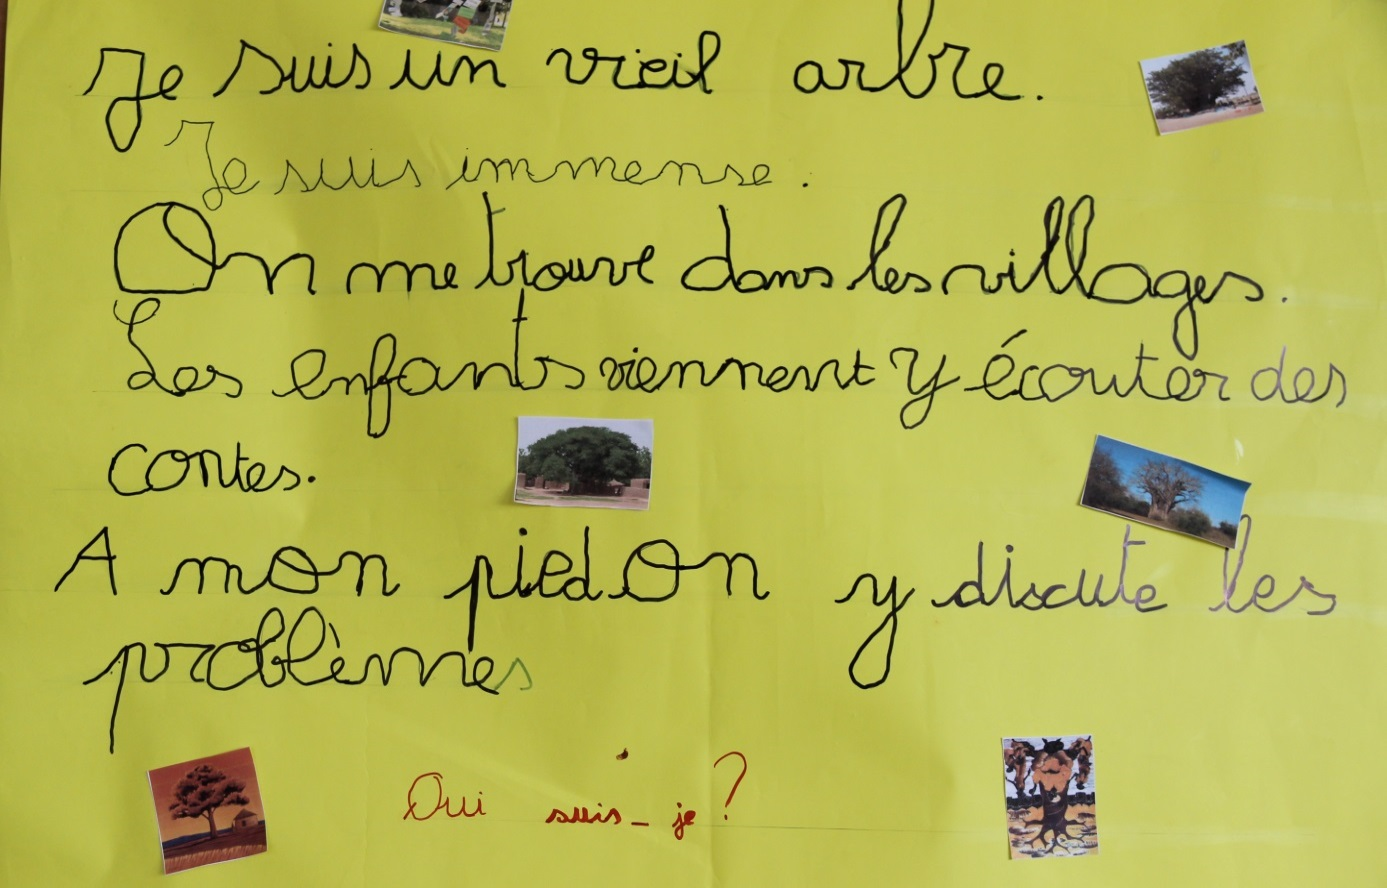 Je suis un vieil arbre.
Je suis immense.
On me trouve dans les villages.
Les enfants viennent y écouter des
contes.
A mon pied On y discute les
problèmes
Qui suis-je?